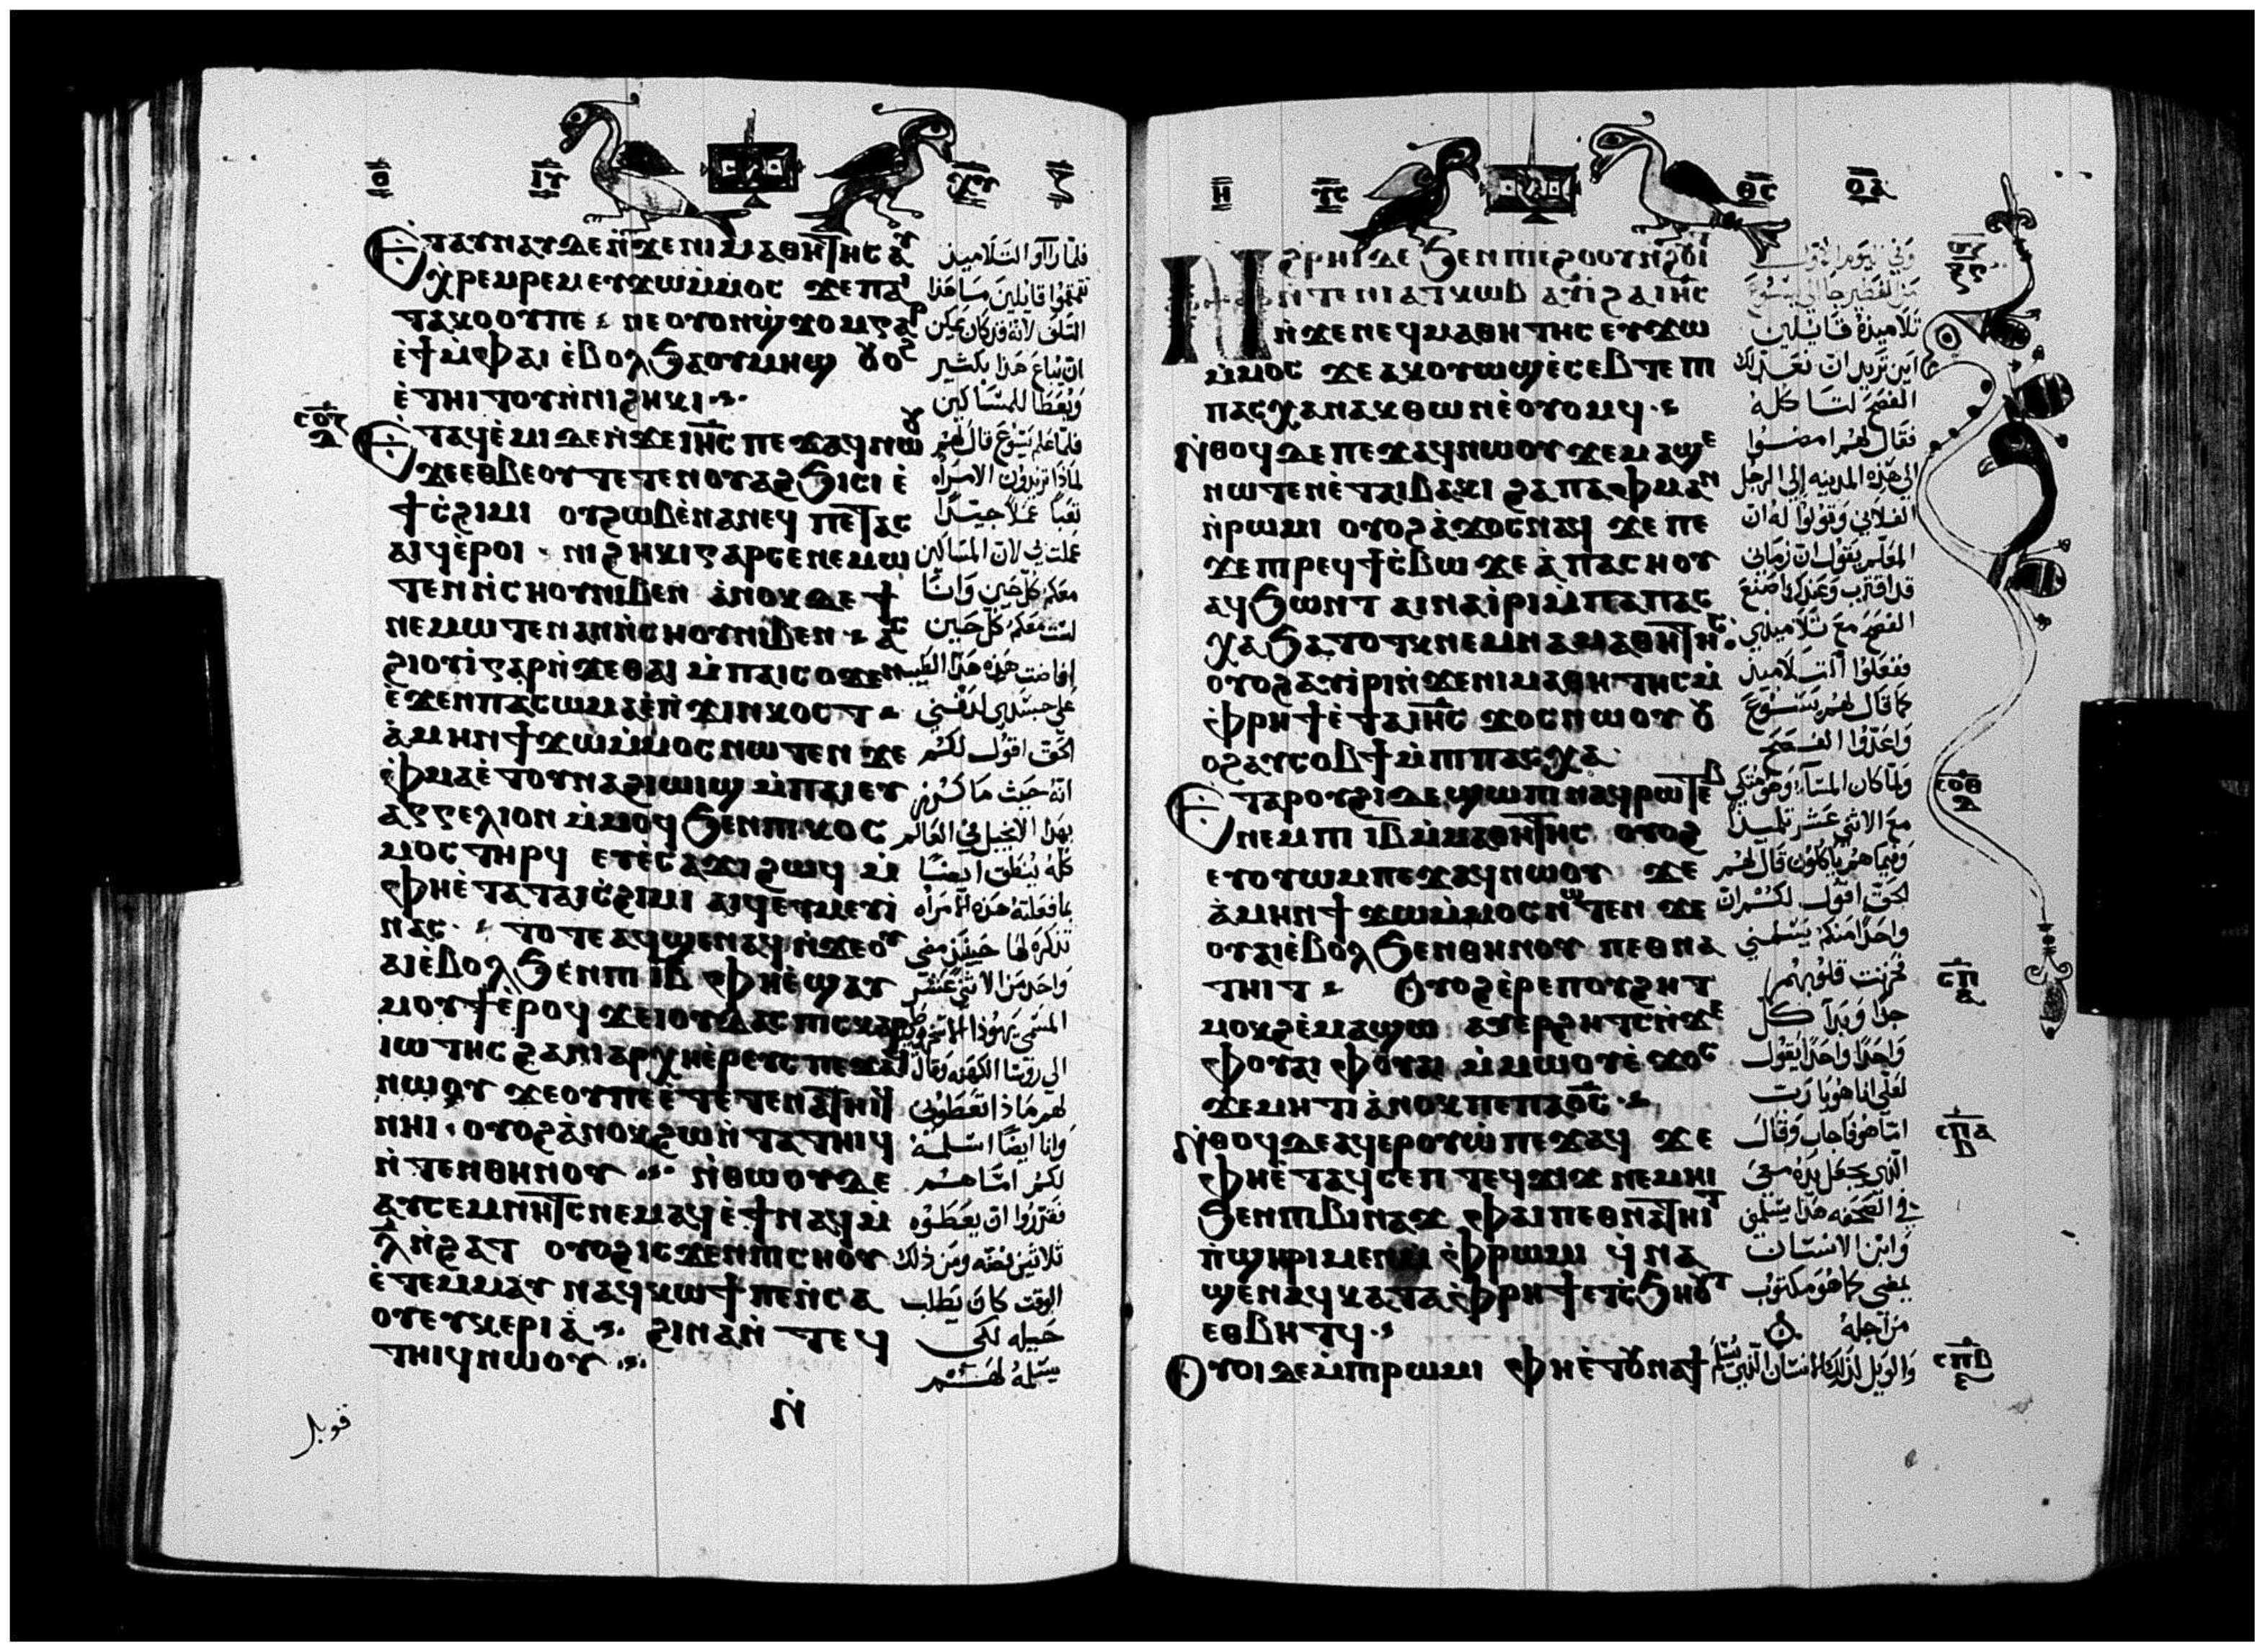 ⲑ ⲓⲩ ⲭⲩ ⲍ
ⲉⲧⲁⲩⲛⲁⲩ ⲇⲉ ⲛ̇ϫⲉ ⲛⲓⲙⲁⲑⲏⲧⲏⲥ ⲁⲩ
ⲭⲣⲉⲙⲣⲉⲙ ⲉⲩϫⲱ ⲙ̇ⲙⲟⲥ ϫⲉ ⲡⲁⲓ
ⲧⲁⲕⲟ ⲟⲩ ⲡⲉ ⲛⲉ ⲟⲩⲟⲛ ϣ̇ϫⲟⲙ ⲅⲁⲣ
ⲉ̇ϯ ⲙ̇ⲫⲁⲓ ⲉ̇ⲃⲟⲗ ϧⲁ ⲟⲩⲙⲏϣ ⲟⲩⲟϩ
ⲉ̇ⲧⲏⲓⲧⲟⲩ ⲛ̇ⲛⲓϩⲏⲕⲓ
ⲉⲧⲁϥⲉ̇ⲙⲓ ⲇⲉ ⲛ̇ϫⲉ ⲓⲏⲥ ⲡⲉϫⲁϥ ⲛⲱⲟⲩ
ϫⲉ ⲉⲑⲃⲉ ⲟⲩ ⲧⲉⲧⲉⲛⲟⲩⲁϩϧⲓⲥⲓ ⲉ̇
ϯⲥ̇ϩⲓⲙⲓ ⲟⲩϩⲱⲃ ⲉ̇ⲛⲁⲛⲉϥ ⲡⲉⲧⲁⲥ
ⲁⲓϥ ⲉ̇ⲣⲟⲓ ⲛⲓϩⲏⲕⲓ ⲅⲁⲣ ⲥⲉⲛⲉⲙⲱ
ⲧⲉⲛ ⲛ̇ⲥⲏⲟⲩ ⲛⲓⲃⲉⲛ ⲁ̇ⲛⲟⲕ ⲇⲉ ϯ
ⲛⲉⲙⲱⲧⲉⲛ ⲁⲛ ⲛ̇ⲥⲏⲟⲩ ⲛⲓⲃⲉⲛ ⲁⲥ
ϩⲓⲟⲩⲓ̇ ⲅⲁⲣ ⲛ̇ϫⲉ ⲑⲁⲓ ⲙ̇ⲡⲁⲓⲥⲟϫⲉⲛ
ⲉ̇ϫⲉⲛ ⲡⲁⲥⲱⲙⲁ ⲉ̇ⲡ̇ϫⲓⲛⲕⲟⲥⲧ
ⲁ̇ⲙⲏⲛ ϯϫⲱ ⲙ̇ⲙⲟⲥ ⲛⲱⲧⲉⲛ ϫⲉ
ⲫ̇ⲙⲁ ⲉ̇ⲧⲟⲩⲛⲁϩⲓⲱⲓϣ ⲙ̇ⲡⲁⲓⲉⲩ
ⲁⲅⲅⲉⲗⲓⲟⲛ ⲙ̇ⲙⲟϥ ϧⲉⲛ ⲡⲓⲕⲟⲥ
ⲙⲟⲥ ⲧⲏⲣϥ ⲉⲩⲉ̇ⲥⲁϫⲓ ϩⲱϥ ⲙ̇
ⲫⲏⲉ̇ⲧⲁ ⲧⲁⲓⲥ̇ϩⲓⲙⲓ ⲁⲓϥ ⲉⲩⲙⲉⲩⲓ̇
ⲛⲁⲥ ⲧⲟⲧⲉ ⲁϥϣⲉⲛⲁϥ ⲛ̇ϫⲉ ⲟⲩ
ⲁⲓ ⲉ̇ⲃⲟⲗ ϧⲉⲛ ⲡⲓⲓⲃ ⲫⲏⲉ̇ϣⲁⲩ
ⲙⲟⲩϯ ⲉ̇ⲣⲟϥ ϫⲉ ⲓⲟⲩⲇⲁⲥ ⲡⲓⲥⲕⲁⲣ
ⲓⲱⲧⲏⲥ ϩⲁ ⲛⲓⲁⲣⲭⲏⲉ̇ⲣⲉⲩⲥ ⲡⲉϫⲁϥ
ⲛⲱⲟⲩ ϫⲉ ⲟⲩ ⲡⲉ ⲉ̇ⲧⲉⲧⲉⲛⲁⲧⲏⲓϥ
ⲛⲏⲓ ⲟⲩⲟϩ ⲁ̇ⲛⲟⲕ ϩⲱ ⲛ̇ⲧⲁⲧⲏⲓϥ
ⲛ̇ⲧⲉⲛⲑⲏⲛⲟⲩ ⲛ̇ⲑⲱⲟⲩ ⲇⲉ
ⲁⲩⲥⲉⲙⲛⲏⲧⲥ ⲛⲉⲙⲁϥ ⲉ̇ϯ ⲛⲁϥ ⲙ̇
ⲗ̅ ⲛ̇ϩⲁⲧ ⲟⲩⲟϩ ⲓⲥϫⲉⲛ ⲡⲓⲥⲏⲟⲩ
ⲉ̇ⲧⲉⲙⲙⲁⲩ ⲛⲁϥⲕⲱϯ ⲡⲉ ⲛ̇ⲥⲁ
ⲟⲩⲉⲩⲕⲉⲣⲓⲁ̇ ϩⲓⲛⲁ ⲛ̇ⲧⲉϥ
ⲧⲏⲓϥ ⲛⲱⲟⲩ
ⲛ̇
فلما رآوا التلاميذ
تقمقموا قايلين ما هذا
التلف لانه قد كان يمكن
ان يباع هذا بكثير
ويعطا للمساكين
فلما علم يسوع قال لهم
لماذا تريدون الامراه
تعبا عملا جيدا
عملت بي لان المساكين
معكم كل حين وانا
لست معكم كل حين
افاضت هذه هذا الطيب
على جسدي لدفني
الحق اقول لكم
انه حيث ما كرز
بهذا الانجيل في العالم
كله ينطق ايضا
بما فعلته هذه الامراه
تذكره لها حينئذ مضى
واحد من الاثني عشر
الى روسا الكهنه وقال
لهم ماذا تعطوني
وانا ايضا اسلمه
لكم اما هم
فقرروا ان يعطوه
ثلاثين فضه ومن ذلك
الوقت كان يطلب
حيله لكي
يسلمه لهم
قوبل
ⲏ ⲩⲥ ⲑⲥ ⲟⲇ
ⲛ̇ϩⲣⲏⲓ ⲇⲉ ϧⲉⲛ ⲡⲓⲉϩⲟⲟⲩ ⲛ̇ϩⲟⲩⲓⲧ
ⲛ̇ⲧⲉ ⲛⲓⲁⲧⲕⲱⲃ ⲁⲩⲓ̇ ϩⲁ ⲓⲏⲥ
ⲛ̇ϫⲉ ⲛⲉϥⲙⲁⲑⲏⲧⲏⲥ ⲉⲩϫⲱ
ⲙ̇ⲙⲟⲥ ϫⲉ ⲁⲕⲟⲩⲱϣ ⲉ̇ⲥⲉⲃⲧⲉ ⲡⲓ
ⲡⲁⲥⲭⲁ ⲛⲁⲕ ⲑⲱⲛ ⲉ̇ⲟⲩⲟⲙϥ
ⲛ̇ⲑⲟϥ ⲇⲉ ⲡⲉϫⲁϥ ⲛⲱⲟⲩ ϫⲉ ⲙⲁϣⲉ
ⲛⲱⲧⲉⲛ ⲉ̇ⲧⲁⲓⲃⲁⲕⲓ ϩⲁ ⲡⲁⲫⲙⲁⲛ
ⲛ̇ⲣⲱⲙⲓ ⲟⲩⲟϩ ⲁ̇ϫⲟⲥ ⲛⲁϥ ϫⲉ ⲡⲉ
ϫⲉ ⲡⲓⲣⲉϥϯⲥ̇ⲃⲱ ϫⲉ ⲁ̇ ⲡⲁⲥⲏⲟⲩ
ⲁϥϧⲱⲛⲧ ⲁⲓⲛⲁⲓ̇ⲣⲓ ⲙ̇ⲡⲁⲡⲁⲥ
ⲭⲁ ϧⲁⲧⲟⲧⲕ ⲛⲉⲙ ⲛⲁⲙⲁⲑⲏⲧⲏⲥ
ⲟⲩⲟϩ ⲁⲩⲓ̇ⲣⲓ ⲛ̇ϫⲉ ⲛⲓⲙⲁⲑⲏⲧⲏⲥ ⲙ̇
ⲫ̇ⲣⲏϯ ⲉ̇ⲧⲁ ⲓⲏⲥ ϫⲟⲥ ⲛⲱⲟⲩ ⲟⲩ
ⲟϩ ⲁⲩⲥⲟⲃϯ ⲙ̇ⲡⲓⲡⲁⲥⲭⲁ
ⲉⲧⲁ ⲣⲟⲩϩⲓ ⲇⲉ ϣⲱⲡⲓ ⲛⲁϥⲣⲱⲧⲉⲃ
ⲛⲉⲙ ⲡⲓⲓⲃ ⲙ̇ⲙⲁⲑⲏⲧⲏⲥ ⲟⲩⲟϩ
ⲉⲩⲟⲩⲱⲙ ⲡⲉϫⲁϥ ⲛⲱⲟⲩ ϫⲉ
ⲁ̇ⲙⲏⲛ ϯϫⲱ ⲙ̇ⲙⲟⲥ ⲛⲱⲧⲉⲛ ϫⲉ
ⲟⲩⲁⲓ ⲉ̇ⲃⲟⲗ ϧⲉⲛ ⲑⲏⲛⲟⲩ ⲡⲉⲑⲛⲁ
ⲧⲏⲓⲧ ⲟⲩⲟϩ ⲉ̇ⲣⲉ ⲡⲟⲩϩⲏⲧ
ⲙⲟⲕϩ ⲉ̇ⲙⲁϣⲱ ⲁⲩⲉⲣϩⲏⲧⲥ ⲛ̇ϫⲉ
ⲫⲟⲩⲁⲓ ⲫⲟⲩⲁⲓ ⲙ̇ⲙⲱⲟⲩ ⲉ̇ϫⲟⲥ
ϫⲉ ⲙⲏⲧⲓ ⲁ̇ⲛⲟⲕ ⲡⲉ ⲡⲁⲟ̅ⲥ̅
ⲛ̇ⲑⲟϥ ⲇⲉ ⲁϥⲉⲣⲟⲩⲱ̇ ⲡⲉϫⲁϥ ϫⲉ
ⲫⲏⲉ̇ⲧⲁϥⲥⲉⲡ ⲧⲉϥϫⲓϫ ⲛⲉⲙⲏⲓ
ϧⲉⲛ ⲡⲓⲃⲓⲛⲁϫ ⲫⲁⲓ ⲡⲉⲑⲛⲁⲧⲏⲓⲧ
ⲡ̇ϣⲏⲣⲓ ⲙⲉⲛ ⲙ̇ⲫ̇ⲣⲱⲙⲓ ϥ̇ⲛⲁ
ϣⲉⲛⲁϥ ⲕⲁⲧⲁ ⲫ̇ⲣⲏϯ ⲉⲧⲥ̇ϧⲏⲟⲩⲧ
ⲉⲑⲃⲏⲧϥ
ⲟⲩⲟⲓ ⲇⲉ ⲙ̇ⲡⲓⲣⲱⲙⲓ ⲫⲏⲉ̇ⲧⲟⲩⲛⲁϯ
تلاميذه قايلين
اين تريد ان نعد لك
الفصح لتاكله
فقال لهم امضوا
الى هذه المدينه الى الرجل
الفلاني وقولوا له ان
المعلم يقول ان زماني
قد اقترب وعندك اصنع
الفصح مع تلاميذي
ففعلوا التلاميذ
كما قال لهم يسوع
واعدوا الفصح
ولما كان المسا وهو متكي
مع الاثني عشر تلميذا
وفيما هم ياكلون قال لهم
الحق اقول لكم ان
واحدا منكم يسلمني
فحزنت قلوبهم
جدا وبدا كل
واحدا واحدا يقول
لعلي انا هو يا رب
اما هو فاجاب وقال
الذي يجعل يده معي
في الصحفه هذا يسلمني
وابن الانسان
يمضي كما هو مكتوب
من اجله
والويل لذلك الانسان الذي يسلم
ⲥⲟⲑ
ⲇ
ⲥⲡ
ⲁ
ⲥⲡⲁ
ⲃ
ⲥⲡⲃ